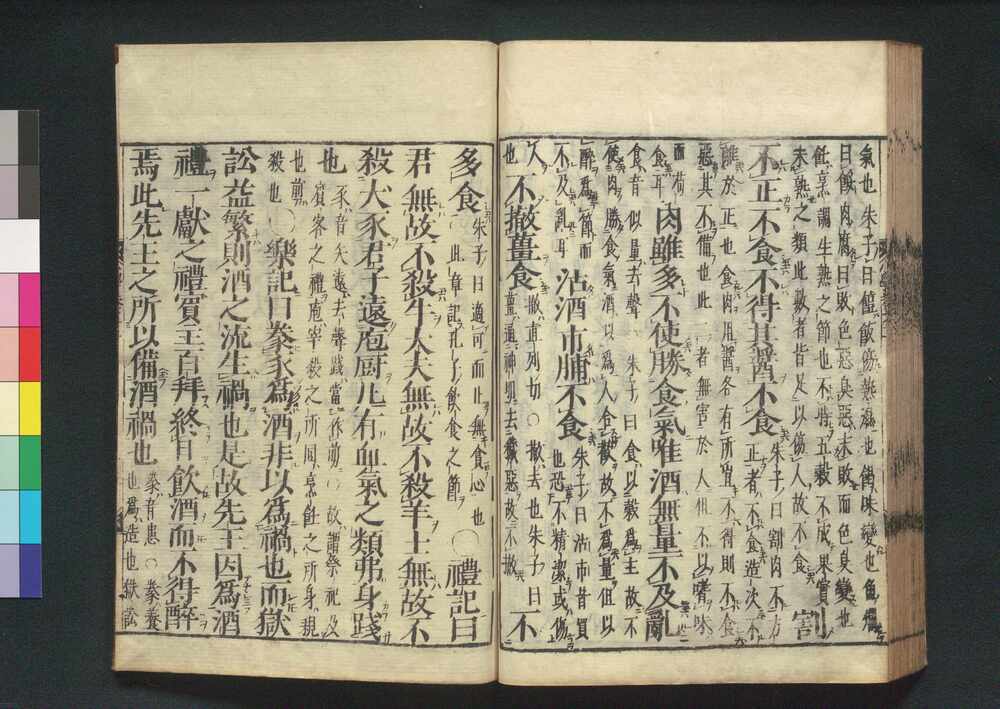 氣也朱子曰饐飯傷熱濕也餲味變也魚爛
曰餒肉腐曰敗色惡臭惡未敗而色臭變也
飪烹調生熟之節也不時五穀不成果實
未熟之類此數者皆足以傷人故不食
割
不正不食不得其醬不食
朱子曰割肉不方
正者不食造次不
離於正也食肉用醬各有所宜不得則不食
惡其不備也此二者無害於人但不以嗜味
而苟
食耳
肉雖多不使勝食氣唯酒無量不及亂
食音似量去聲 朱子曰食以穀爲主故不
使肉勝食氣酒以爲人合歡故不爲量但以
醉爲節而
不及亂耳
沽酒市脯不食
朱子曰沽市皆買
也恐不精潔或傷
人
也
不撤薑食
撤直列切○撤去也朱子曰
薑通神明去穢惡故不撤
不
多食
朱子曰適可而止無貪心也
此章記孔子飲食之節
○禮記曰
君無故不殺牛大夫無故不殺羊士無故不
殺犬豕君子遠庖厨凡有血氣之類弗身踐
也
豕音矢遠去聲踐當作剪○故謂祭祀及
賓客之禮庖宰殺之所厨烹飪之所身親
也剪
殺也
○樂記曰豢豕爲酒非以爲禍也而獄
訟益繁則酒之流生禍也是故先王因爲酒
禮一獻之禮賓主百拜終日飲酒而不得醉
焉此先王之所以備酒禍也
豢音患○豢養
也爲造也獄訟